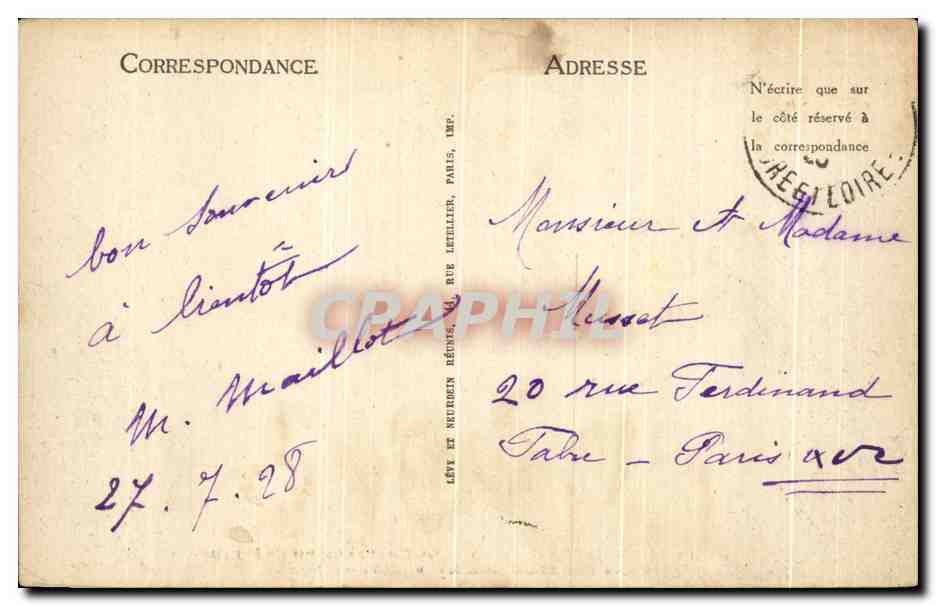 CORRESPONDANCE
bon souvenir
à bientôt
M. Maillot
27.7.28
LÉVY ET NEURDEIN RÉUNIS, 44, RUE LETELLIER, PARIS, IMP.
ADRESSE
N'écrire que sur
le côté réservé à
la correspondance
Monsieur et Madame
Musset
20 rue Ferdinand
Fabre - Paris XVe
ET LOIRE
CPAPHIL